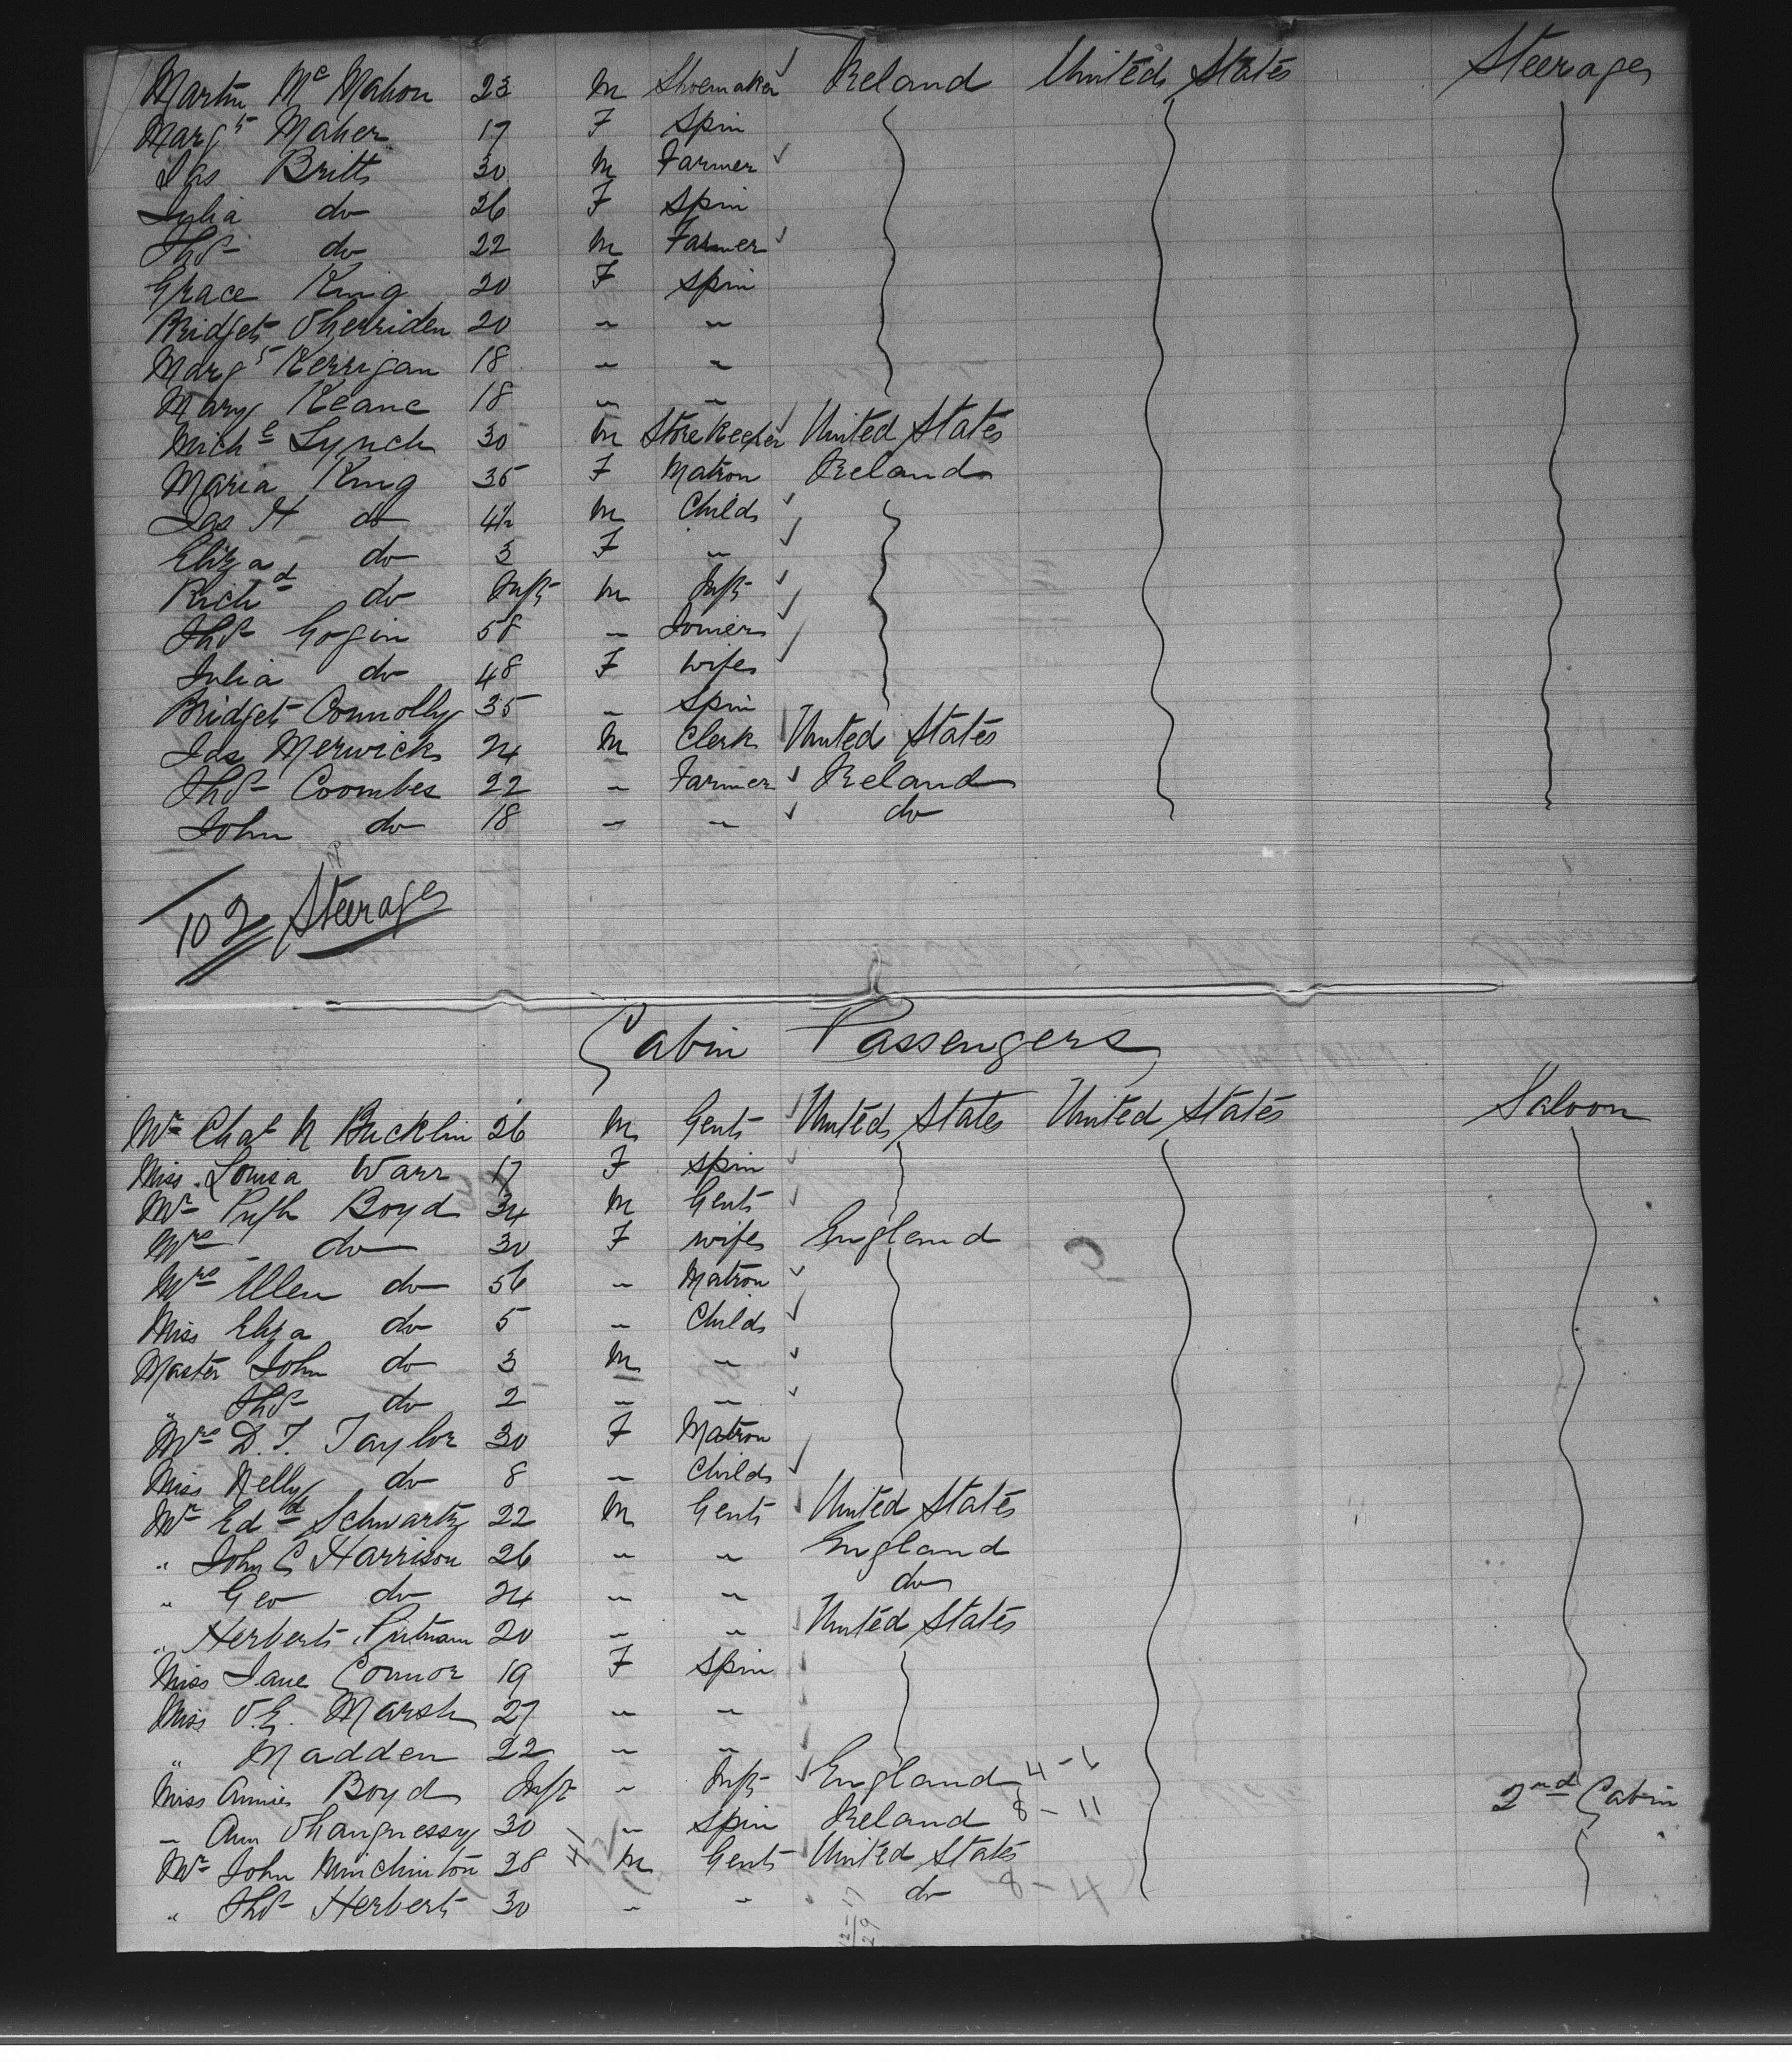 Martin McMahon 23 M Shoemaker Ireland United States Steerage
Margt Maher 17 F Spin
Jas Britts 30 M Farmer
Julia do 26 F Spin
Thos do 22 M Farmer
Grace King 20 F Spin
Bridget Sherriden 20 " "
Margt Kerrigan 18 " "
Mary Keane 18 " "
Michl Lynch 30 M Storekeeper United States
Maria King 35 F Matron Ireland
Jas H do 4½ M Child
Eliza do 3 F "
Richd do Inft M Inft
Thos Gogin 58 " Joiner
Julia do 48 F Wife
Bridget Connolly 35 " Spin
Jas Merwick 24 M Clerk United States
Thos Coombes 22 " Farmer Ireland
John do 18 " " do
102 Steerage
Cabin Passengers
Mr Chas N Bucklin 26 M Gent United States United States Saloon
Miss Louisa Warr 17 F Spin
Mr Pugh Boyd 34 M Gent
Mrs do 30 F Wife England
Mrs Ellen do 56 " Matron
Miss Eliza do 5 " Child
Master John do 3 M "
" Thos do 2 " "
Mrs D. T. Taylor 30 F Matron
Miss Nelly do 8 " Child
Mr Edd Schwartz 22 M Gent United States
" John C Harrison 26 " " England
" Geo do 24 " " do
" Herbert Putnam 20 " " United States
Miss Jane Connor 19 F Spin
Miss S. E. Marsh 27 " "
" Madden 22 " "
Miss Annie Boyd Inft " Inft England 4-6 2nd Cabin
" Ann Shaugnessy 30 " Spin Ireland 8-11
Mr John Minchinton 28 M Gent United States
" Thos Herbert 30 " " do 8-4